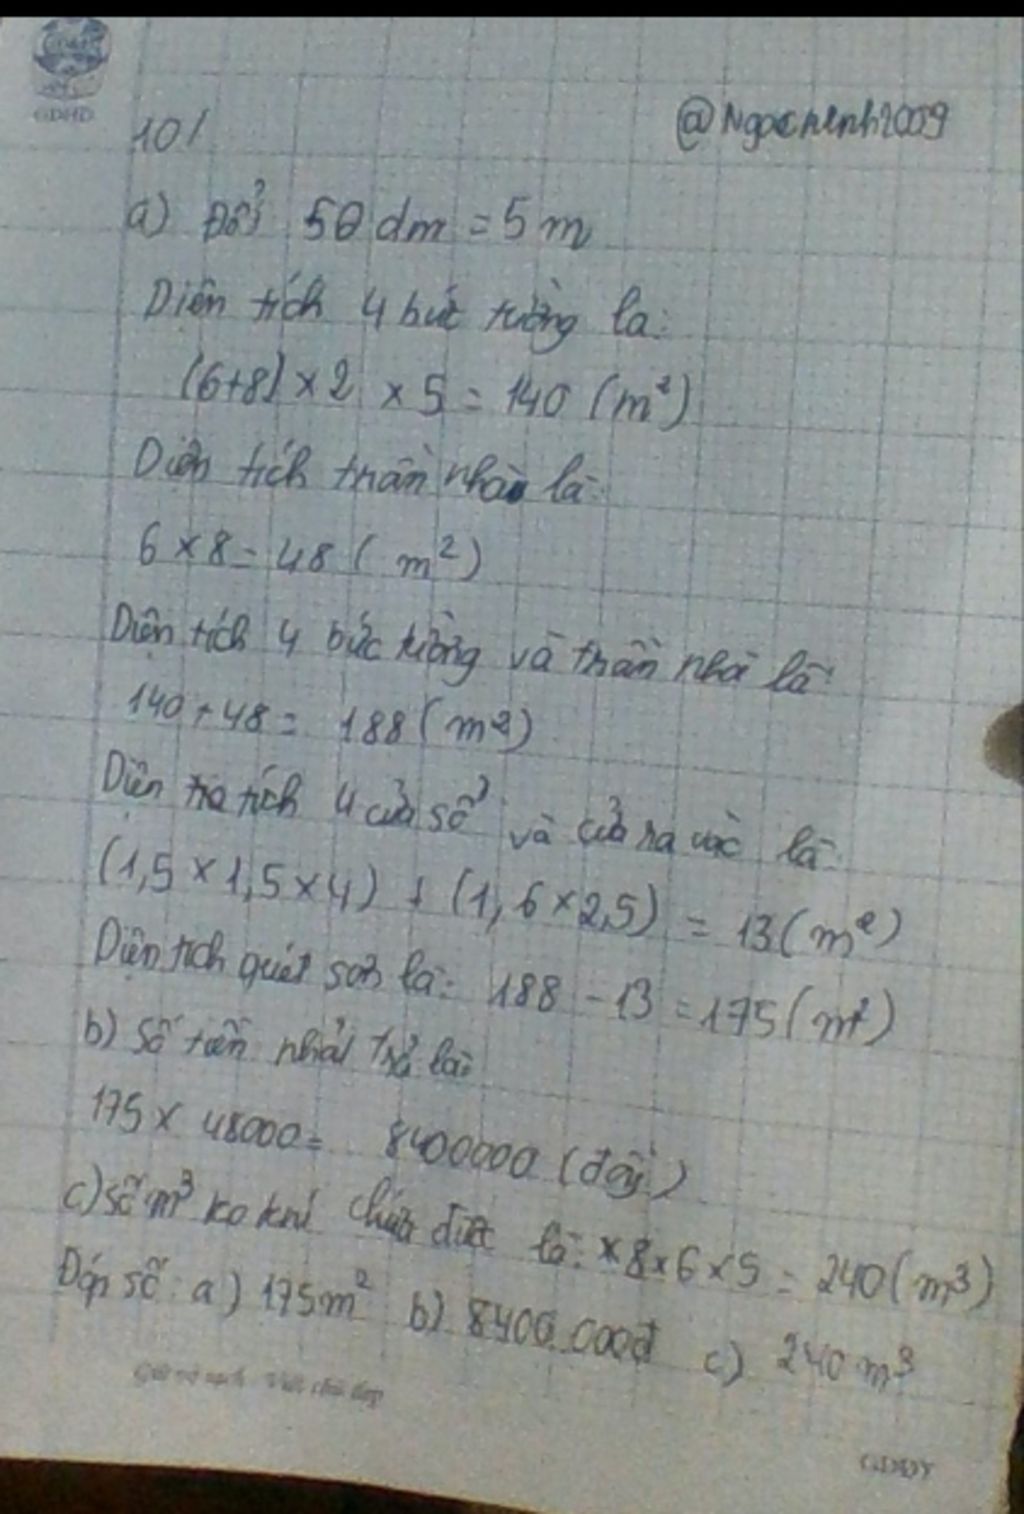 GDHD
@Ngocninh2009
10/
a) Đổi 50 dm = 5 m
Diện tích 4 bức tường là:
(6+8) × 2 × 5 = 140 (m²)
Diện tích trần nhà là:
6 × 8 = 48 ( m²)
Diện tích 4 bức tường và trần nhà là:
140 + 48 = 188 (m²)
Diện tích 4 cửa sổ và cửa ra vào là:
(1,5 × 1,5 × 4) + (1,6 × 2,5) = 13 (m²)
Diện tích quét sơn là: 188 - 13 = 175 (m²)
b) Số tiền phải trả là:
175 × 48000 = 8400000 (đồng)
c) Số m³ ko khí chứa được là: × 8 × 6 × 5 = 240 (m³)
Đáp số: a) 175m² b) 8400.000đ c) 240 m³
Giữ vở sạch - Viết chữ đẹp